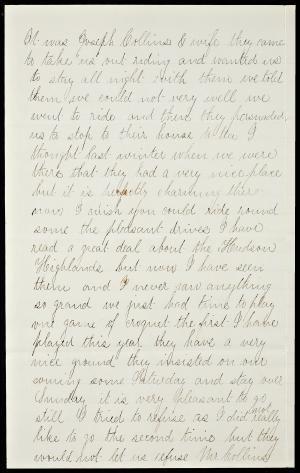 It was Joseph Collins & wife they came
to take us out riding and wanted us
to stay all night with them we told
them we could not very well we
went to ride and then they persuaded
us to stop to their house to tea I
thought last winter when we were
there that they had a very nice place
but it is perfectly charming there
now I wish you could ride round
some the pleasant drives I have
read a great deal about the Hudson
Highlands but now I have seen
them and I never saw anything
so grand we just had time to play
one game of croquet the first I have
played this year they have a very
nice ground they insisted on our
coming some Saturday and stay over
Sunday it is very pleasant to go
still I tried to refuse as I did not really
like to go the second time but they
would not let us refuse Mr Collins